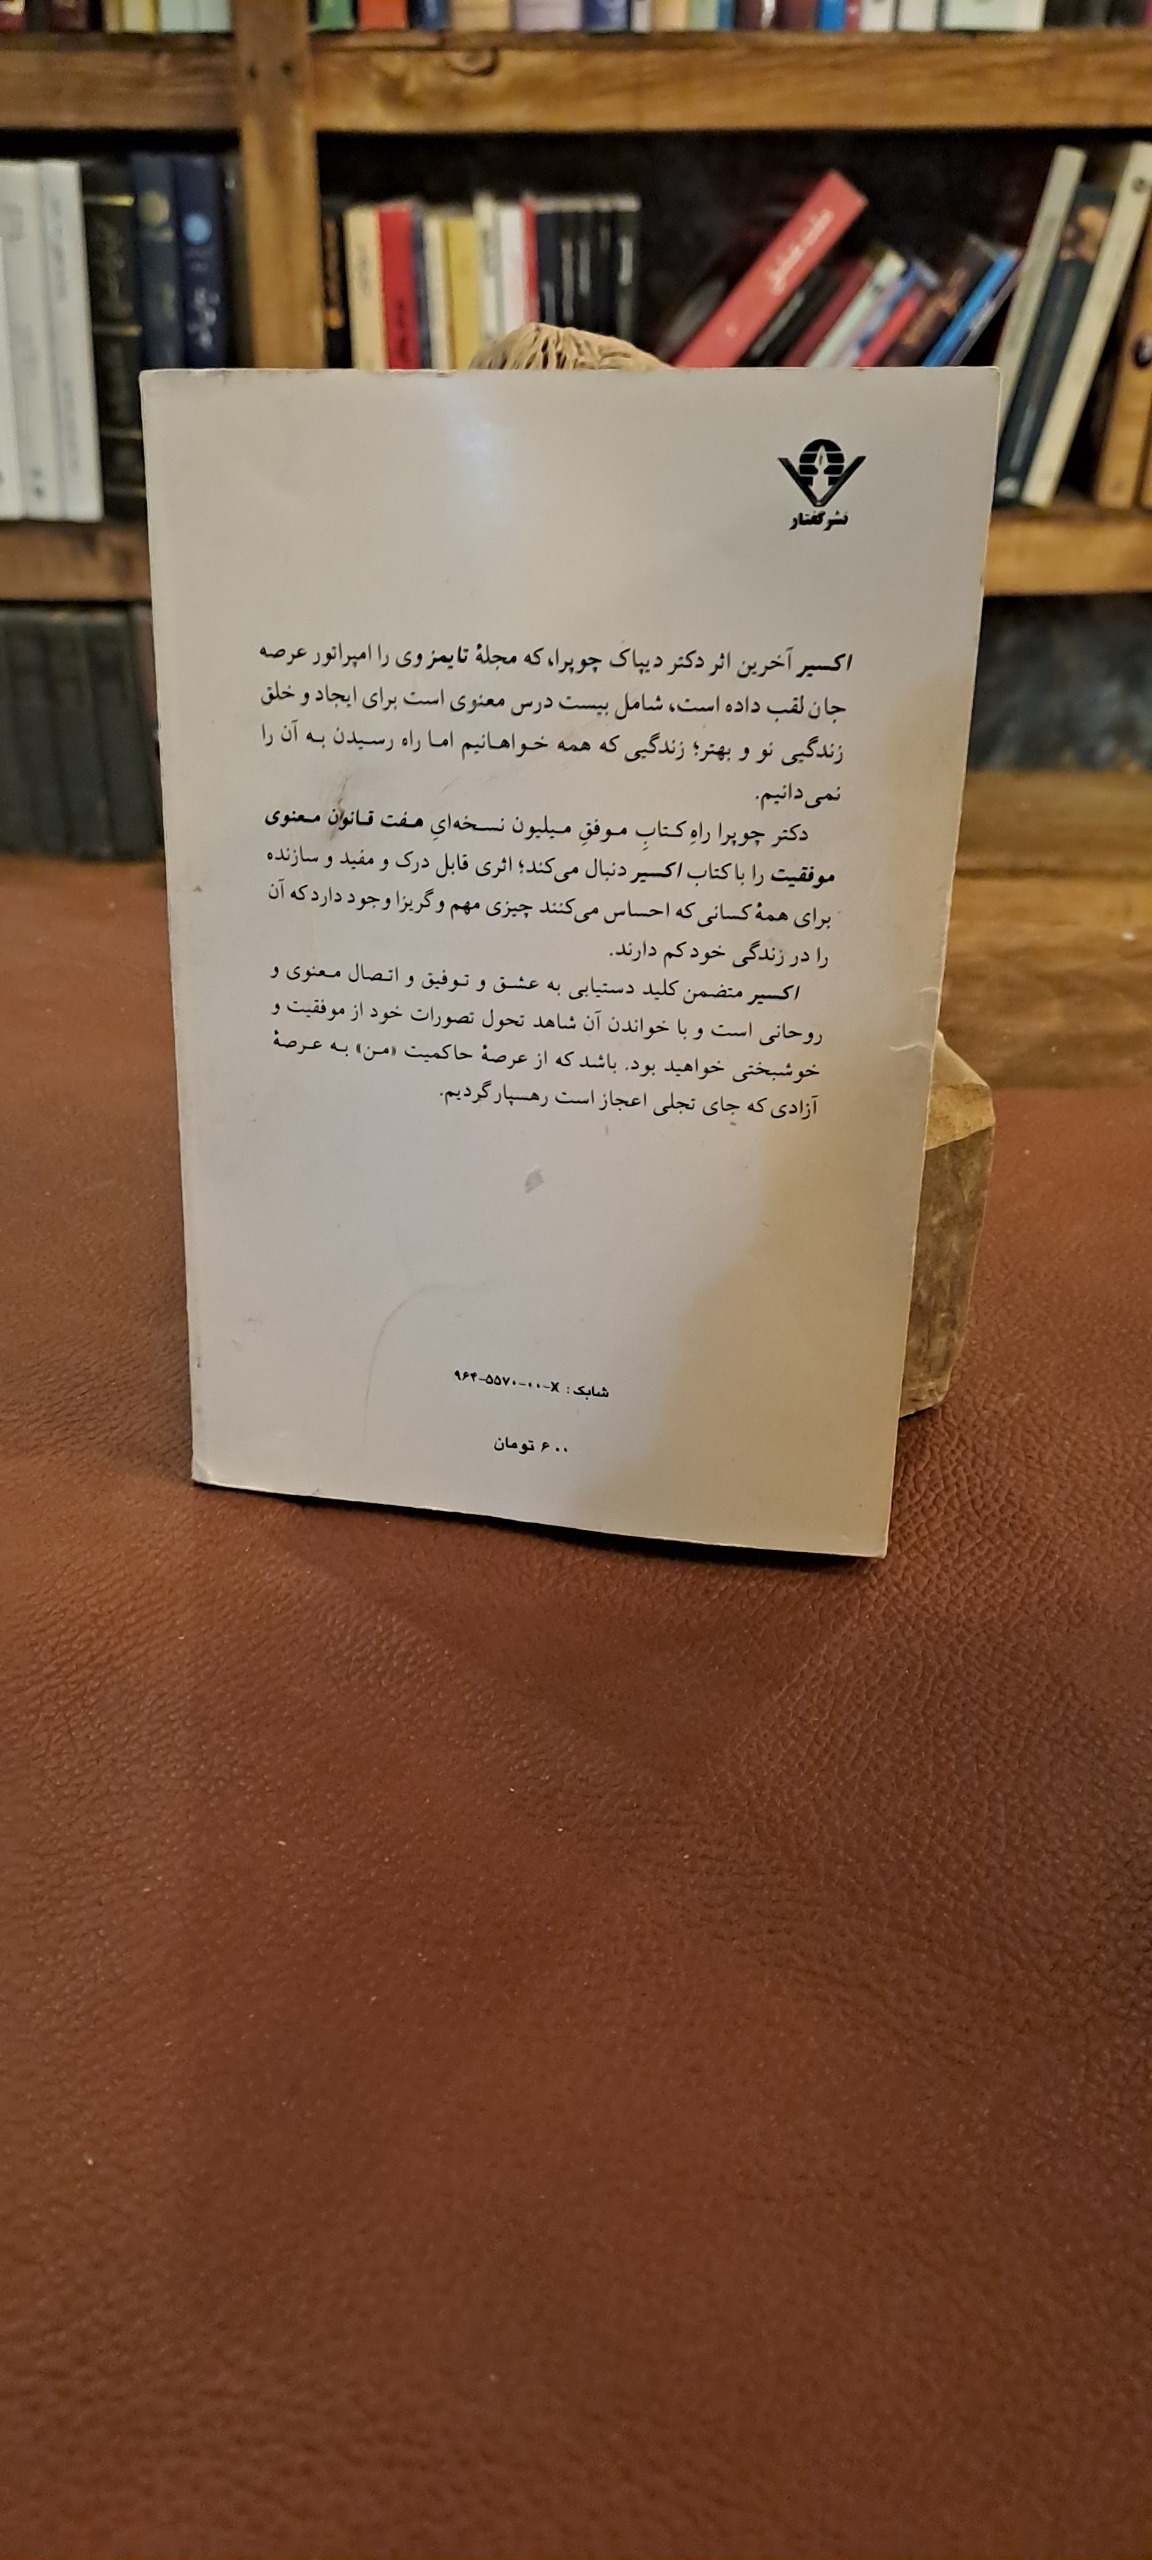 نشر گفتار
اکسیر آخرین اثر دکتر دیپاک چوپرا، که مجلهٔ تایمز وی را امپراتور عرصه
جان لقب داده است، شامل بیست درس معنوی است برای ایجاد و خلق
زندگیی نو و بهتر؛ زندگیی که همه خواهانیم اما راه رسیدن به آن را
نمی‌دانیم.
دکتر چوپرا راهِ کتابِ موفقِ میلیون نسخه‌ایِ هفت قانون معنوی
موفقیت را با کتاب اکسیر دنبال می‌کند؛ اثری قابل درک و مفید و سازنده
برای همهٔ کسانی که احساس می‌کنند چیزی مهم و گریزا وجود دارد که آن
را در زندگی خود کم دارند.
اکسیر متضمن کلید دستیابی به عشق و توفیق و اتصال معنوی و
روحانی است و با خواندن آن شاهد تحول تصورات خود از موفقیت و
خوشبختی خواهید بود. باشد که از عرصهٔ حاکمیت «من» به عرصهٔ
آزادی که جای تجلی اعجاز است رهسپار گردیم.
شابک: ۹۶۴-۵۵۷۰-۰۰-X
۶۰۰ تومان